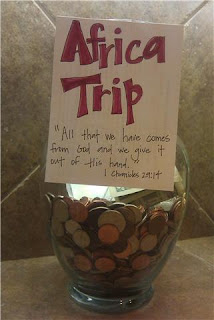 Africa
Trip
"All that we have comes
from God and we give it
out of His hand."
1 Chronicles 29:14